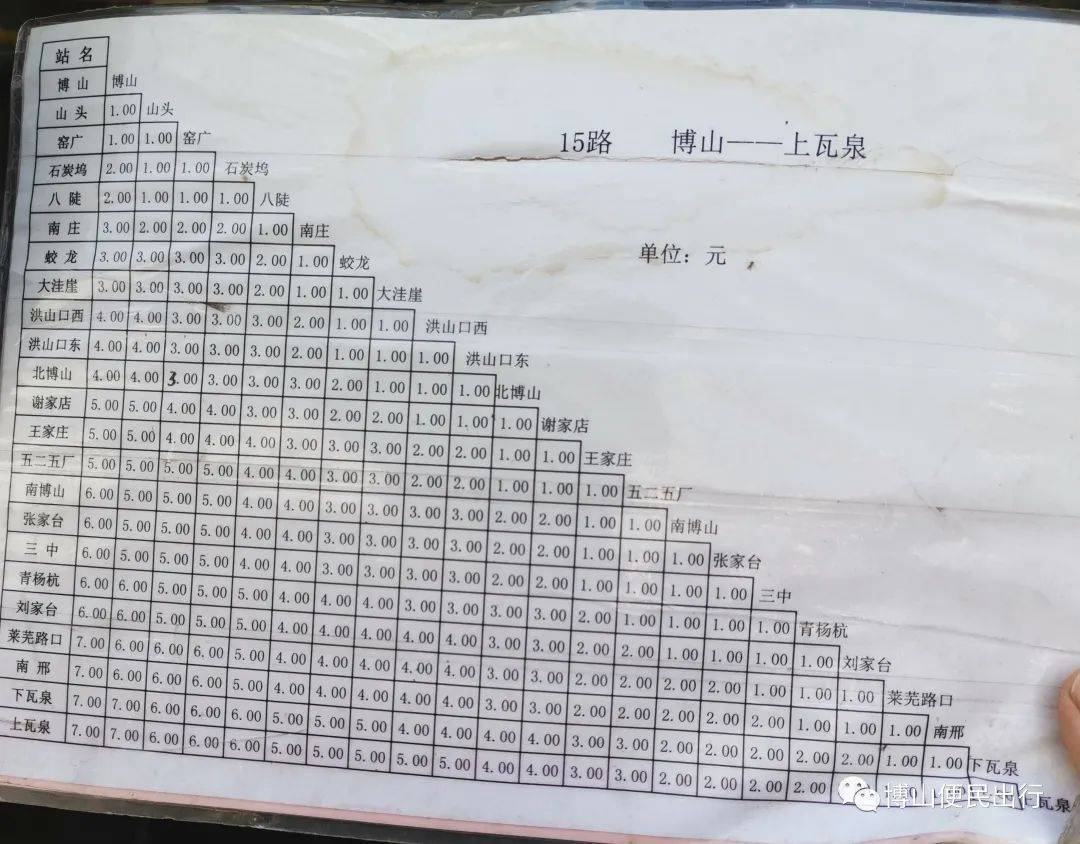 站名
博山 博山
山头 1.00 山头
窑广 1.00 1.00 窑广
15路 博山——上瓦泉
石炭坞 2.00 1.00 1.00 石炭坞
八陡 2.00 1.00 1.00 1.00 八陡
南庄 3.00 2.00 2.00 2.00 1.00 南庄
单位：元
蛟龙 3.00 3.00 3.00 3.00 2.00 1.00 蛟龙
大洼崖 3.00 3.00 3.00 3.00 2.00 1.00 1.00 大洼崖
洪山口西 4.00 4.00 3.00 3.00 3.00 2.00 1.00 1.00 洪山口西
洪山口东 4.00 4.00 3.00 3.00 3.00 2.00 1.00 1.00 1.00 洪山口东
北博山 4.00 4.00 3.00 3.00 3.00 3.00 2.00 1.00 1.00 1.00 北博山
谢家店 5.00 5.00 4.00 4.00 3.00 3.00 2.00 2.00 1.00 1.00 1.00 谢家店
王家庄 5.00 5.00 4.00 4.00 4.00 3.00 3.00 3.00 2.00 2.00 1.00 1.00 王家庄
五二五厂 5.00 5.00 5.00 5.00 4.00 4.00 3.00 3.00 2.00 2.00 1.00 1.00 1.00 五二五厂
南博山 6.00 5.00 5.00 5.00 4.00 4.00 3.00 3.00 3.00 3.00 2.00 2.00 1.00 1.00 南博山
张家台 6.00 5.00 5.00 5.00 4.00 4.00 3.00 3.00 3.00 3.00 2.00 2.00 1.00 1.00 1.00 张家台
三中 6.00 5.00 5.00 5.00 4.00 4.00 3.00 3.00 3.00 3.00 2.00 2.00 1.00 1.00 1.00 1.00 三中
青杨杭 6.00 6.00 5.00 5.00 5.00 4.00 4.00 4.00 3.00 3.00 3.00 3.00 2.00 1.00 1.00 1.00 1.00 青杨杭
刘家台 6.00 6.00 5.00 5.00 5.00 4.00 4.00 4.00 4.00 4.00 3.00 3.00 2.00 2.00 1.00 1.00 1.00 1.00 刘家台
莱芜路口 7.00 6.00 6.00 6.00 5.00 4.00 4.00 4.00 4.00 4.00 3.00 3.00 2.00 2.00 2.00 2.00 1.00 1.00 1.00 莱芜路口
南邢 7.00 6.00 6.00 6.00 5.00 4.00 4.00 4.00 4.00 4.00 3.00 3.00 2.00 2.00 2.00 2.00 2.00 1.00 1.00 1.00 南邢
下瓦泉 7.00 7.00 6.00 6.00 6.00 5.00 5.00 5.00 4.00 4.00 4.00 4.00 3.00 3.00 2.00 2.00 2.00 2.00 2.00 1.00 1.00 下瓦泉
上瓦泉 7.00 7.00 6.00 6.00 6.00 5.00 5.00 5.00 5.00 5.00 4.00 4.00 3.00 3.00 2.00 2.00 2.00 2.00 上瓦泉
博山便民出行